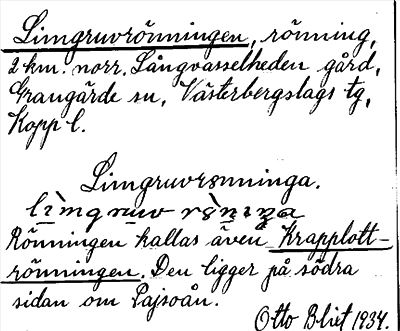 Limgruvrönningen, rönning,
2 km. norr. Långvasselheden gård,
Grangärde sn, Västerbergslags tg,
Kopp l.
Limgruvrønninga.
Rönningen kallas även Krapplott-
rönningen. Den ligger på södra
sidan om Pajsoån.
Otto Blixt 1934.